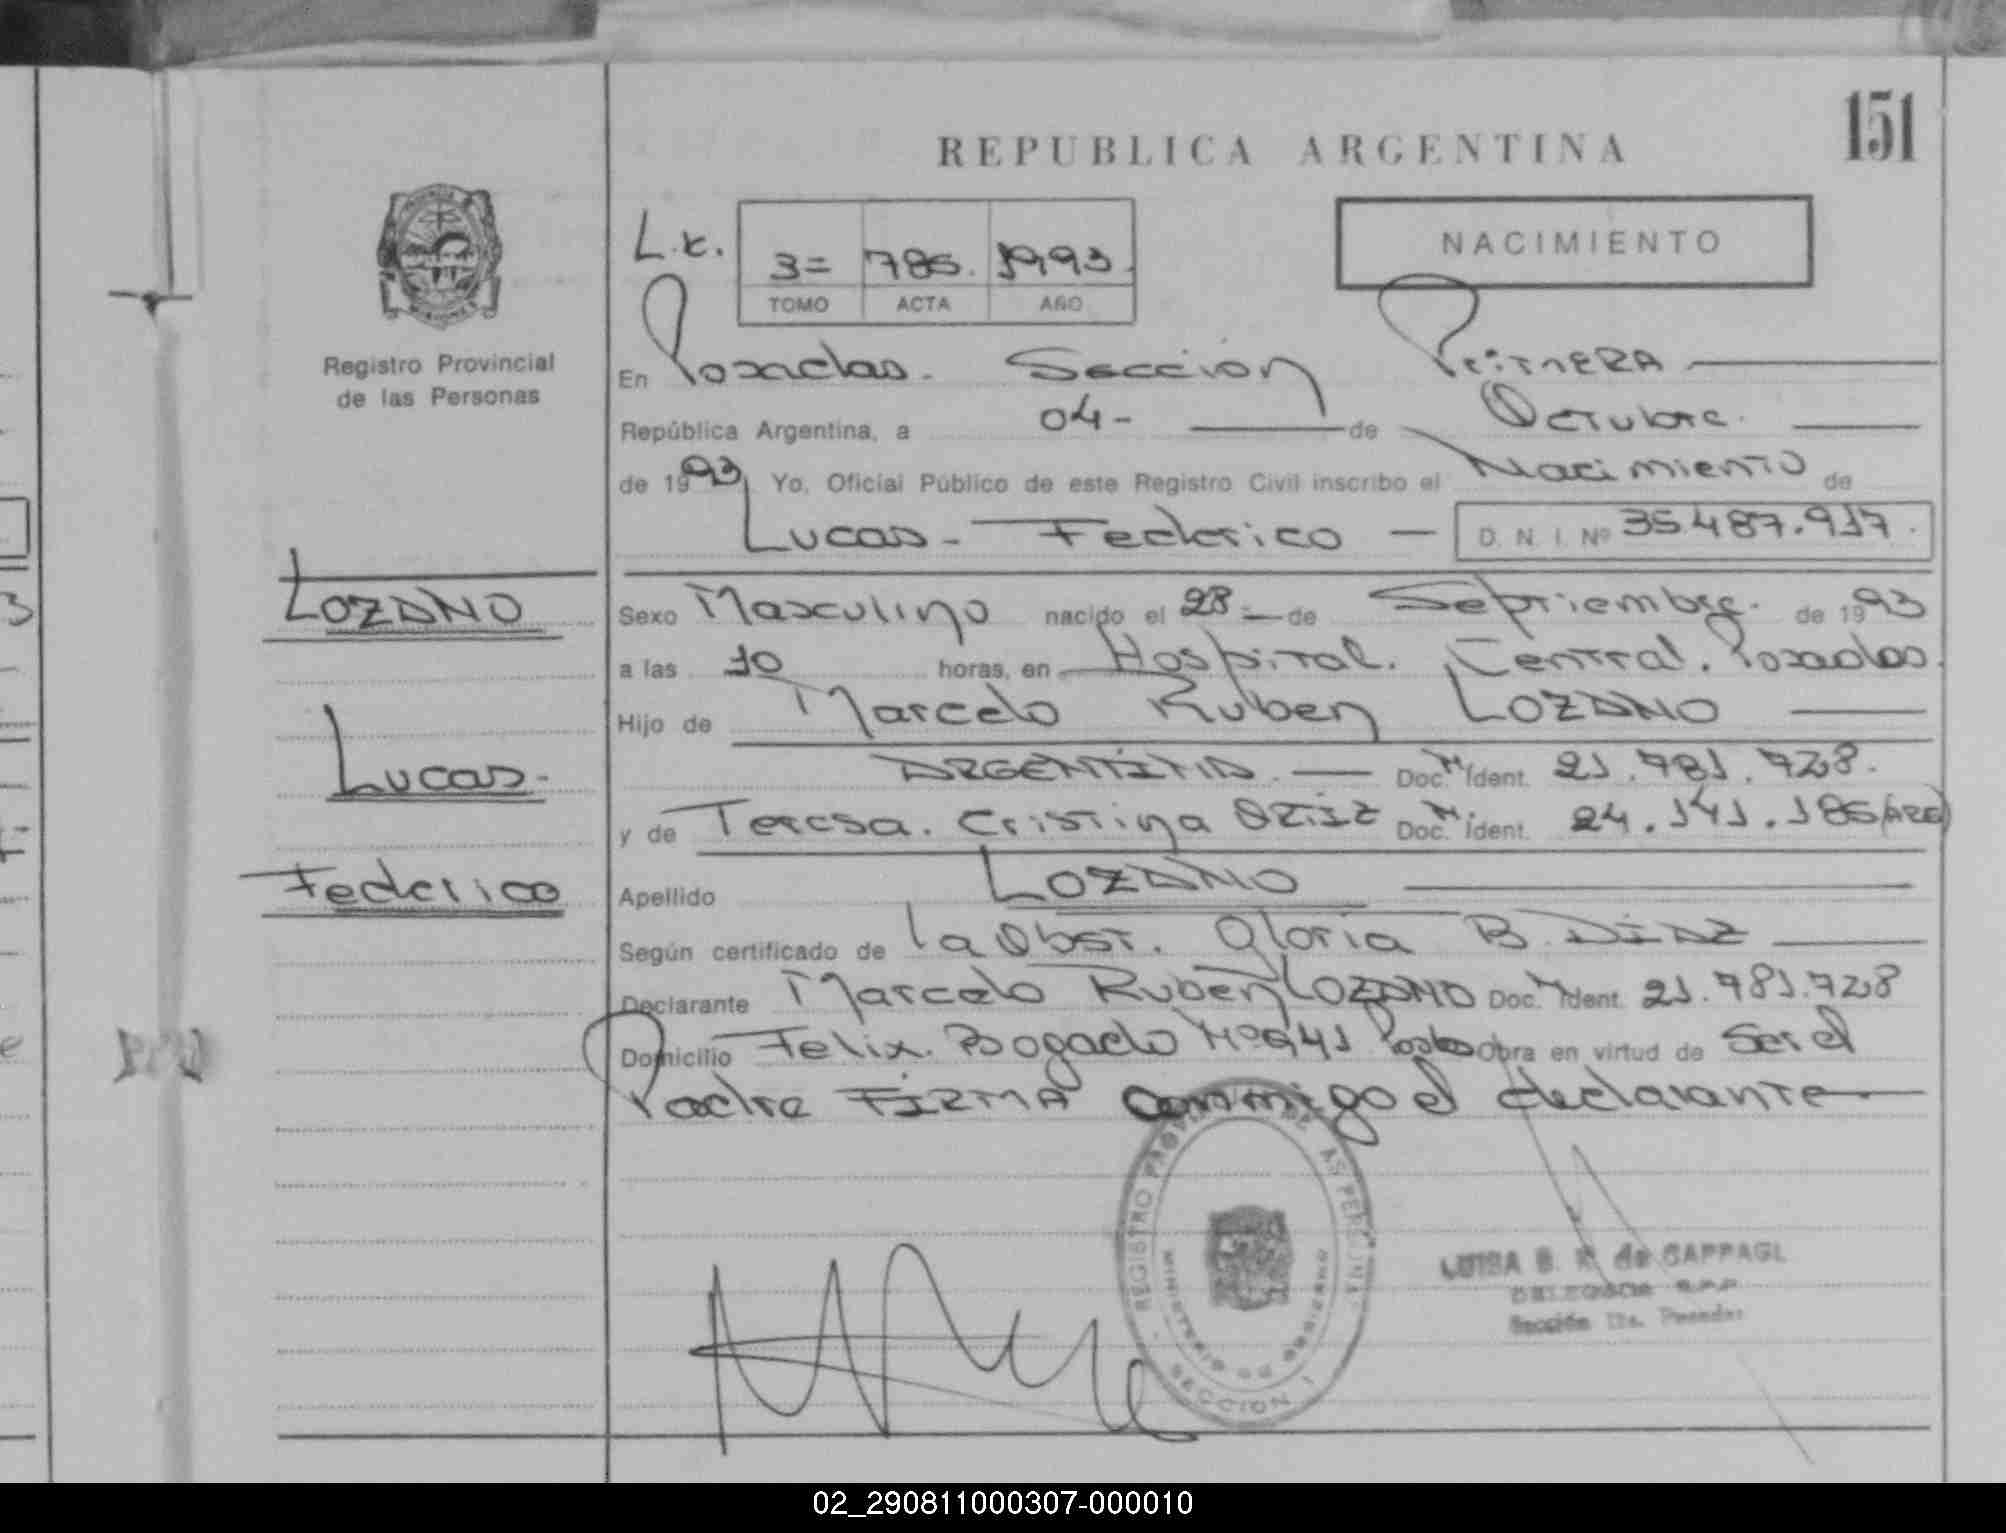 151
REPUBLICA ARGENTINA
NACIMIENTO
L.c. 3= 786. 1993.
TOMO ACTA AÑO
Registro Provincial
de las Personas
En Posadas. Sección Primera
República Argentina, a 04- de Octubre.
de 1993 Yo, Oficial Público de este Registro Civil inscribo el Nacimiento de
Lucas - Federico — D. N. I. Nº 35.487.917.
LOZANO
Lucas.
Federico
Sexo Masculino nacido el 28 = de Septiembre. de 1993
a las 10 horas, en Hospital. Central. Posadas.
Hijo de Marcelo Ruben LOZANO
ARGENTINA. — Doc. Ident. 21.781.728.
y de Teresa. Cristina ORTIZ Doc. Ident. 24.141.186 (ARG)
Apellido LOZANO
Según certificado de la Obst. Gloria B. DIAZ
Declarante Marcelo Ruben LOZANO Doc. Ident. 21.781.728
Domicilio Felix. Bogado Nº 641 Obra en virtud de Ser el
Padre FIRMA conmigo el declarante
REGISTRO PROVINCIAL DE LAS PERSONAS
MINISTERIO DE GOBIERNO
SECCION 1
LUISA B. R. de
Sección 1ra. Posadas
02_290811000307-000010